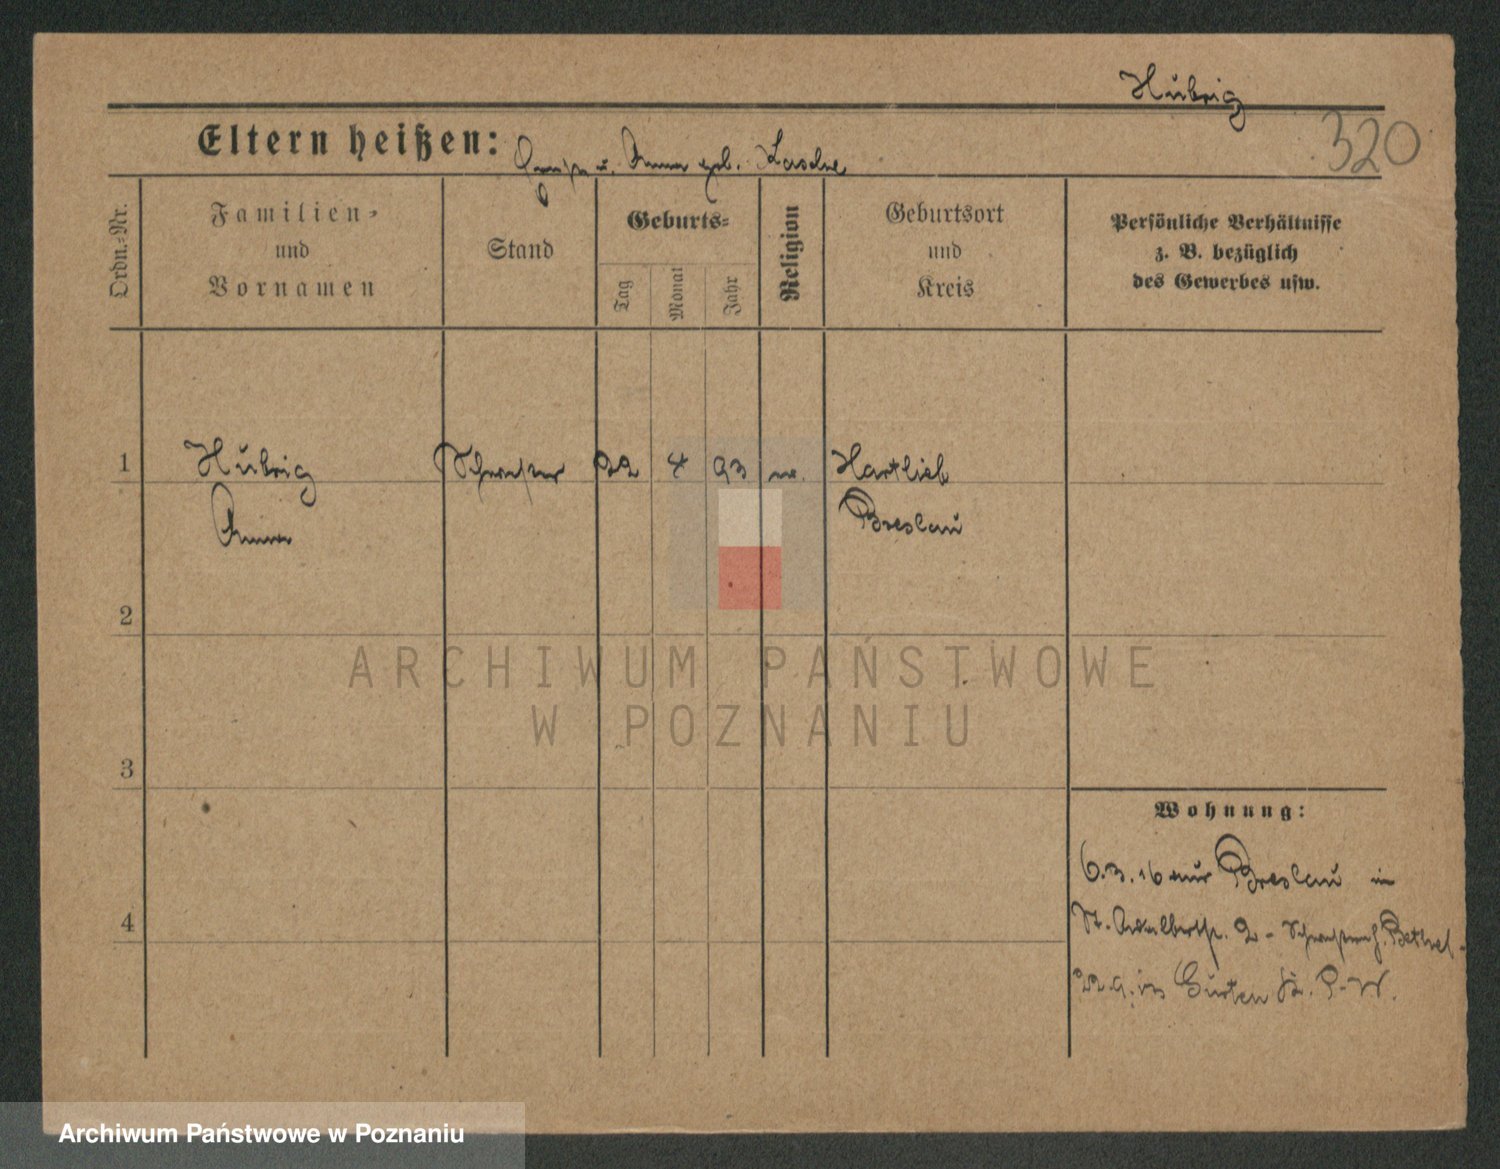 Hübrig
320
Eltern heißen: u. Anna geb. Lasche
Ordn.-Nr.
Familien-
und
Vornamen
Stand
Geburts-
Tag
Monat
Jahr
Religion
Geburtsort
und
Kreis
Persönliche Verhältnisse
z. B. bezüglich
des Gewerbes usw.
1
Hübrig
Anna
Schwester
22
4
93
ev.
Hartlieb
Breslau
2
ARCHIWUM PAŃSTWOWE
W POZNANIU
3
Wohnung:
6.3.16 aus Breslau in
St. Adalbertstr. 2 - Bethel-
22.9. Gurten Kr. P-W.
4
Archiwum Państwowe w Poznaniu